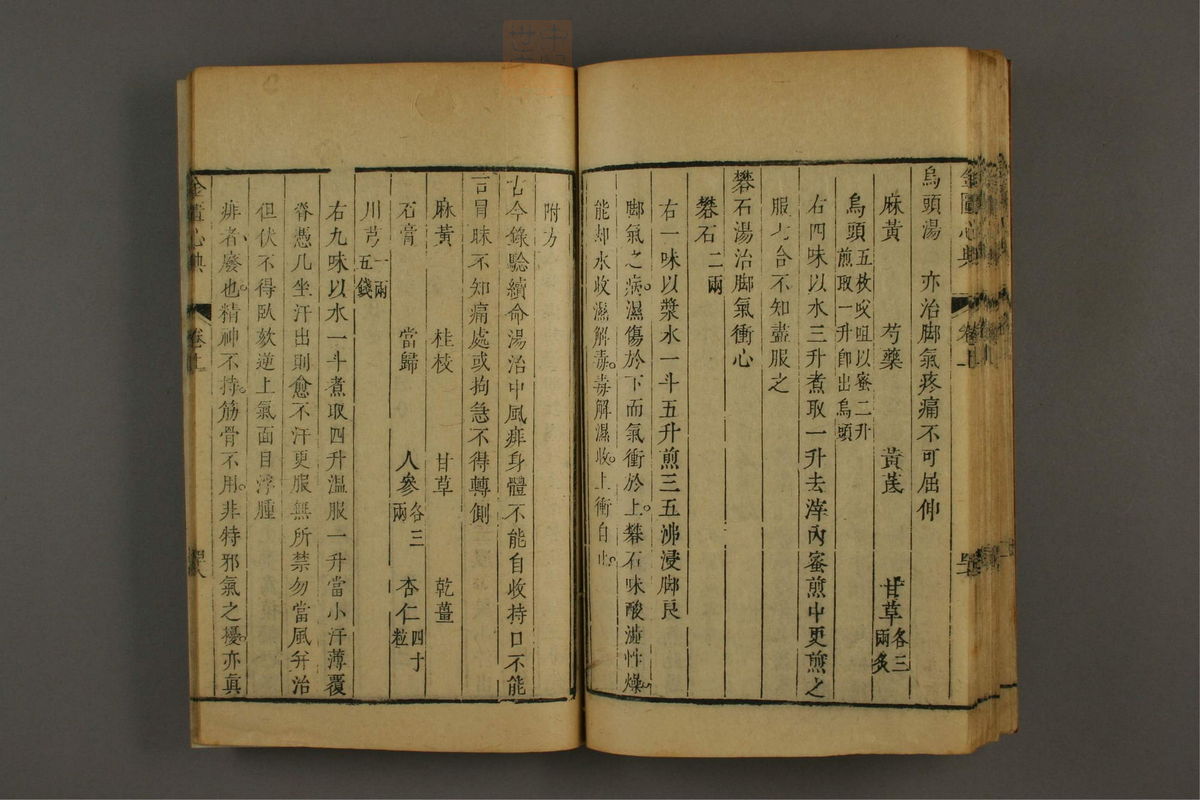 金匱心典
卷上
烏頭湯　亦治脚氣疼痛不可屈伸
麻黃　芍藥　黃茋　甘草各三兩炙
烏頭五枚㕮咀以蜜二升煎取一升卽出烏頭
右四味以水三升煮取一升去滓內蜜煎中更煎之
服七合不知盡服之
礬石湯治脚氣衝心
礬石二兩
右一味以漿水一斗五升煎三五沸浸脚良
脚氣之病。濕傷於下而氣衝於上。礬石味酸濇性燥。
能却水收濕解毒。毒解濕收。上衝自止。
附方
古今錄驗續命湯治中風痱身體不能自收持口不能
言冒昧不知痛處或拘急不得轉側
麻黃　桂枝　甘草　乾薑
石膏　當歸　人參各三兩　杏仁四十粒
川芎一兩五錢
右九味以水一斗煮取四升溫服一升當小汗薄覆
脊憑几坐汗出則愈不汗更服無所禁勿當風幷治
但伏不得臥欬逆上氣面目浮腫
痱者。廢也。精神不持。筋骨不用。非特邪氣之擾。亦眞
金匱心典
卷上